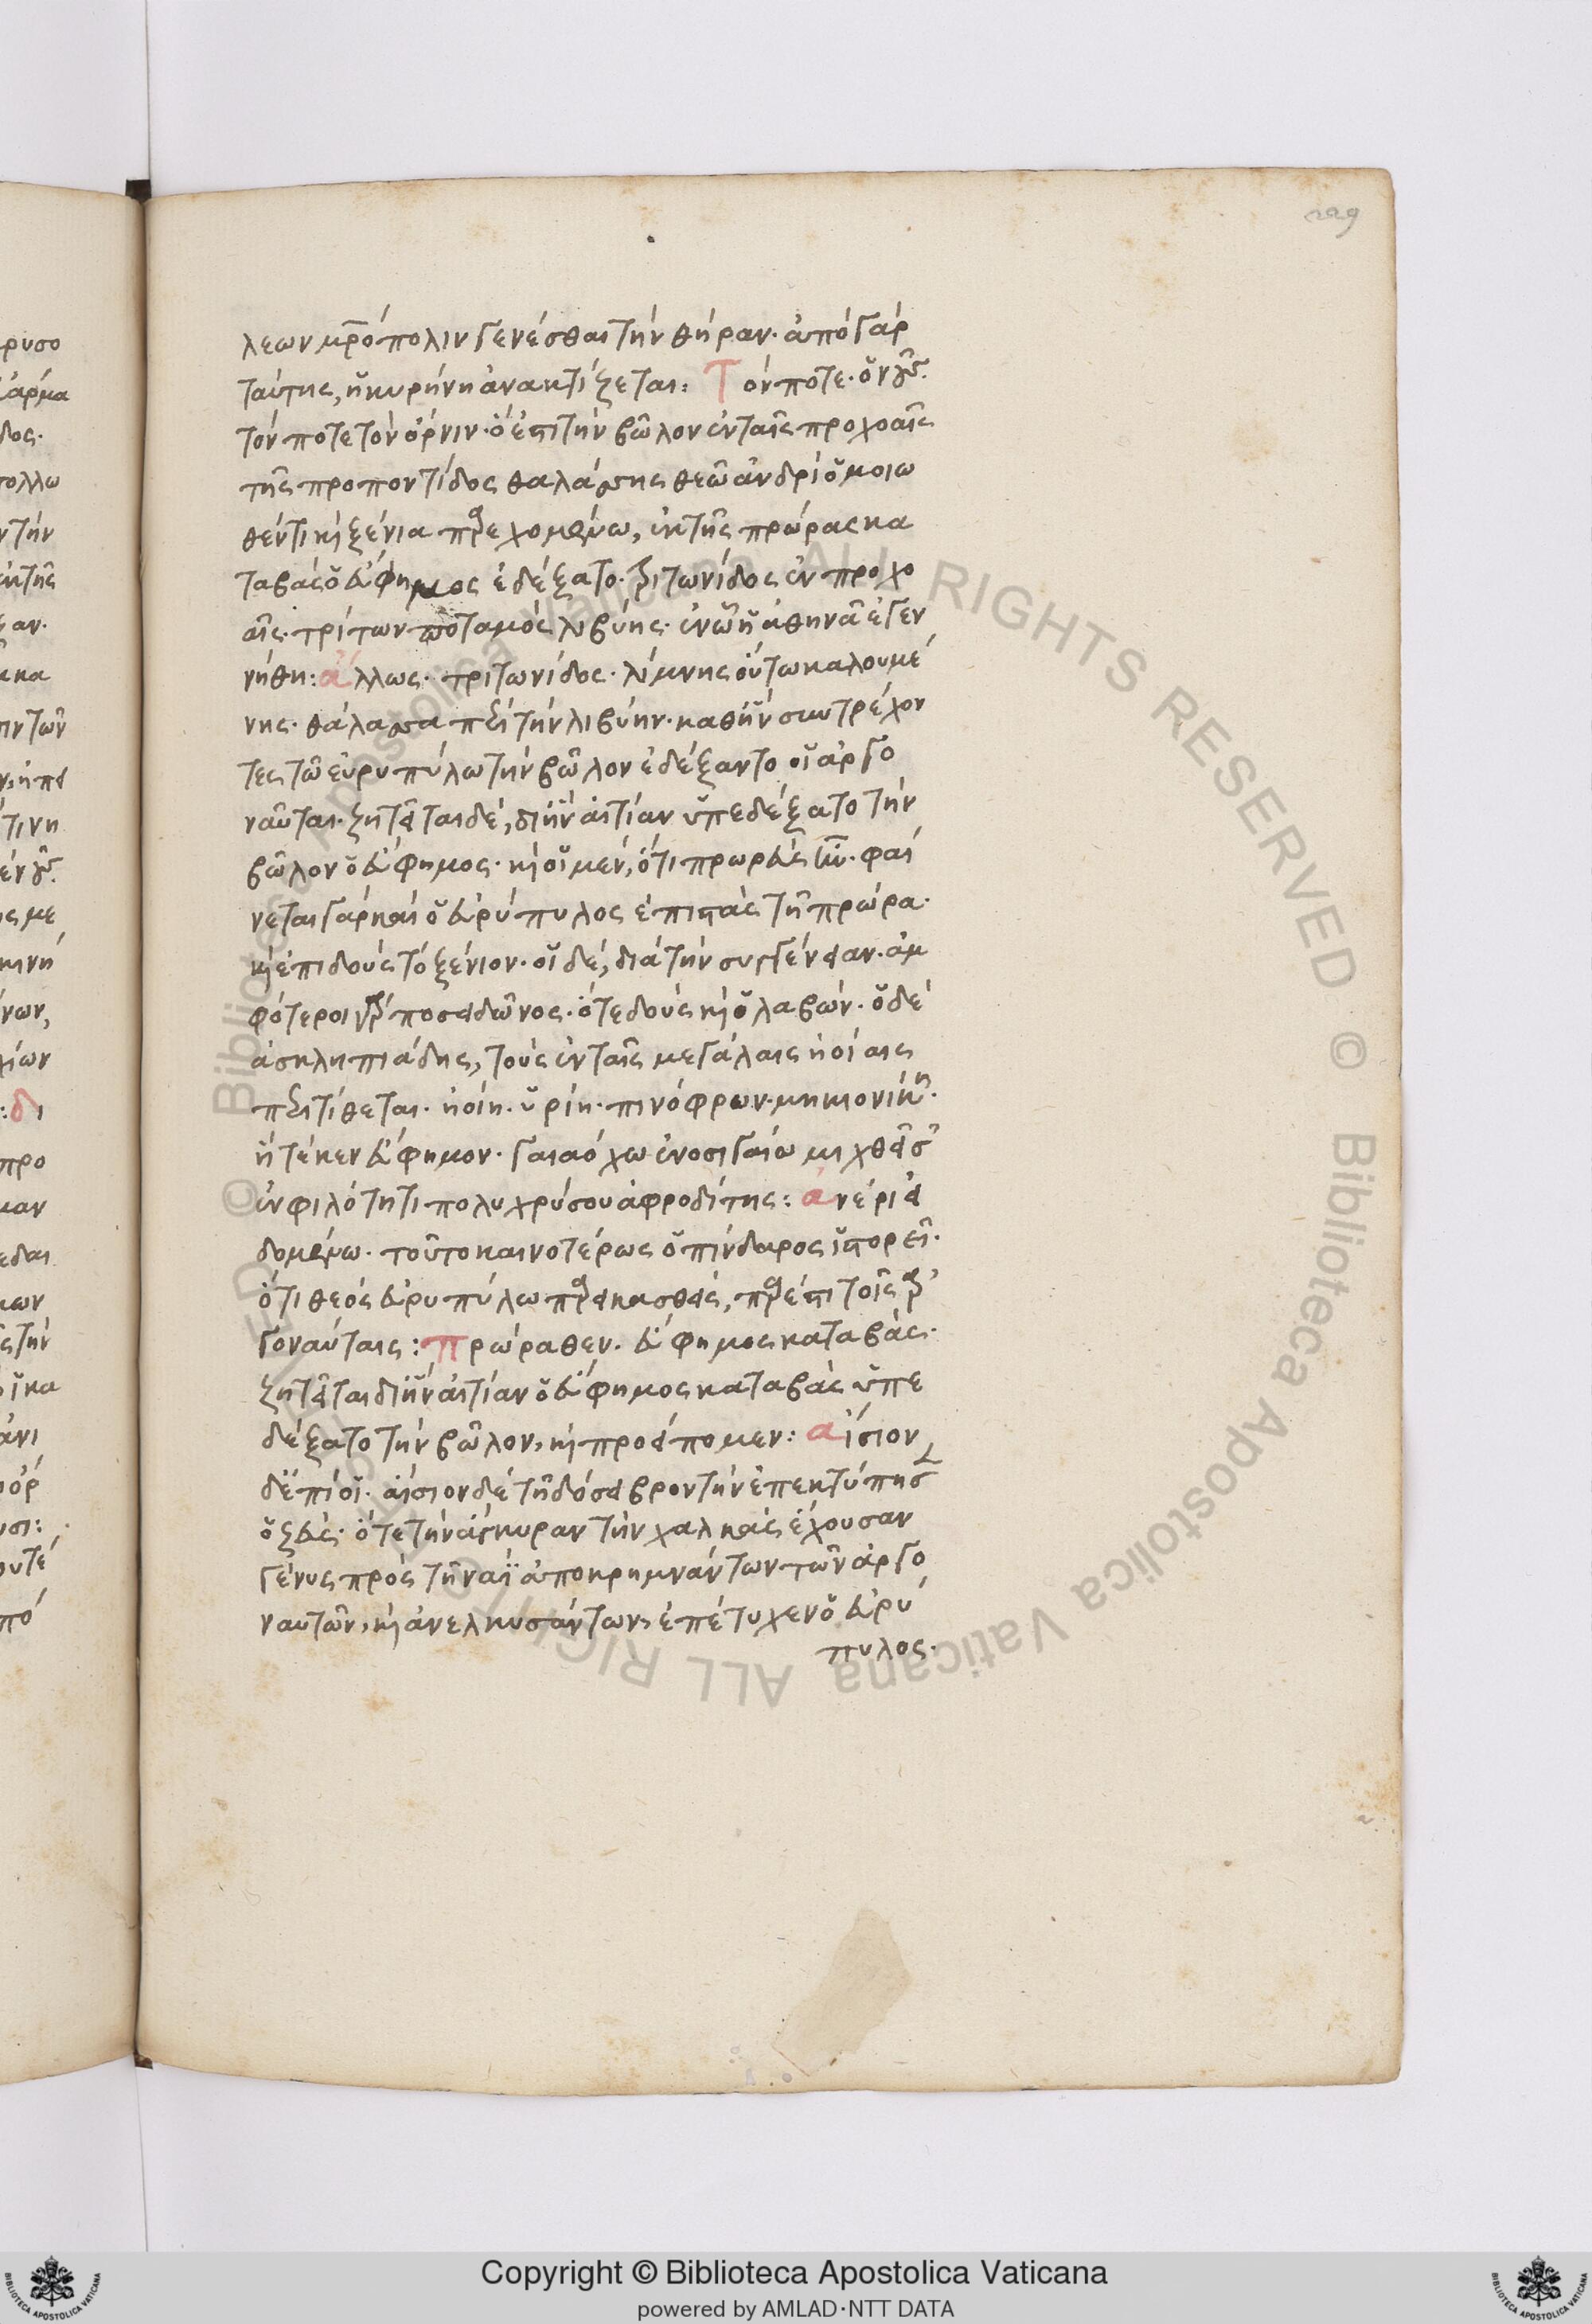 229
λεων μρ̅όπολιν γενέσθαι τὴν θήραν· ἀπὸ γὰρ
ταύτης, ἡ κυρήνη ἀνακτίζεται: Τόν ποτε· ὄρνιν
τόν ποτε τὸν ὄρνιν· ὁ ἐπὶ τὴν βῶλον ἐν ταῖς προχοαῖς
τῆς προποντίδος θαλάσσης θεῶ ἀνδρὶ ὁμοιω
θέντι κὶ ξένια παρεχομένω, ἐκ τῆς πρώρας κα
ταβὰς ὁ εὔφημος ἐδέξατο· τριτωνίδος ἐν προχο
αῖς· τρίτων ποταμὸς λιβύης· ἐν ὧ ἡ ἀθηνᾶ ἐγεν
νήθη: ἄλλως· τριτωνίδος· λίμνης οὕτω καλουμέ
νης· θάλασσα περὶ τὴν λιβύην· καθ ἣν συντρέχον
τες τῶ εὐρυπύλω τὴν βῶλον ἐδέξαντο οἱ ἀργο
ναῦται· ζητεῖται δέ, δι ἣν αἰτίαν ὑπεδέξατο τὴν
βῶλον ὁ εὔφημος· κὶ οἱ μέν, ὅτι πρωρεὺς ἦν· φαί
νεται γὰρ καὶ ὁ εὐρύπυλος ἐπιστὰς τῆ πρώρα·
κὶ ἐπιδοὺς τὸ ξένιον· οἱ δέ, διὰ τὴν συγγένειαν· ἀμ
φότεροι γὰρ ποσειδῶνος· ὅ τε δοὺς κὶ ὁ λαβών· ὁ δὲ
ἀσκληπιάδης, τοὺς ἐν ταῖς μεγάλαις ἠοίαις
περιτίθεται· ἠοίη· ὑρίη· πινόφρων· μηκιονίκη·
ἣ τέκεν εὔφημον· γαιαόχω ἐνοσιγαίω μιχθεῖσ
ἐν φιλότητι πολυχρύσου ἀφροδίτης: ἀνέρι εἰ
δομένω· τοῦτο καινοτέρως ὁ πίνδαρος ἱστορεῖ·
ὅτι θεὸς εὐρυπύλω παρεικασθείς, παρέστι τοῖς ἀρ
γοναύταις: πρώραθεν· εὔφημος καταβάς·
ζητεῖται δι ἣν αἰτίαν ὁ εὔφημος καταβὰς ὑπε
δέξατο τὴν βῶλον, κὶ προείπομεν: αἴσιον
δ ἐπί οἱ· αἴσιον δὲ τῆ δόσει βροντὴν ἐπεκτύπησεν
ὁ ζεύς· ὅτε τὴν ἄγκυραν τὴν χαλκᾶς ἔχουσαν
γένυς πρὸς τῆ ναῒ ἀποκρημνάντων τῶν ἀργο
ναυτῶν, κὶ ἀνελκυσάντων, ἐπέτυχεν ὁ εὐρύ
πυλος·
Copyright © Biblioteca Apostolica Vaticana
powered by AMLAD·NTT DATA